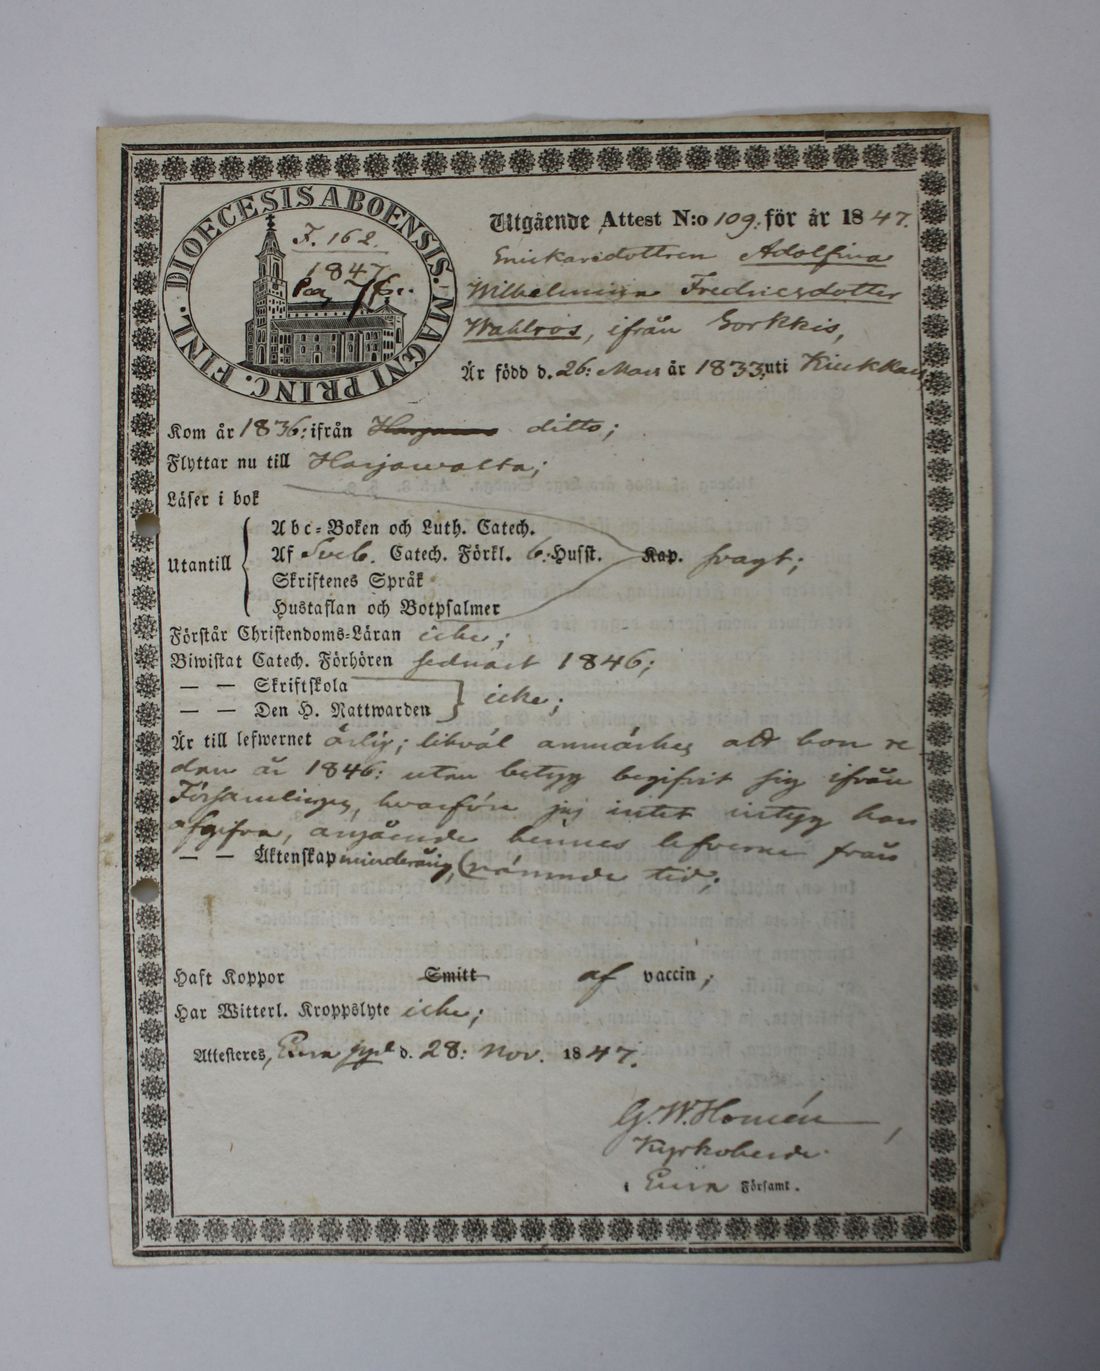 DIOECESIS ABOENSIS MAGNI PRINC. FINL.
F. 162.
1847
Pag
Utgående Attest N:o 109. för år 1847.
Enikaredottren Adolfina
Wilhelmina Fredricsdotter
Wahlroos, ifrån Sorkkis,
Är född d. 26: Mars år 1833, uti Kiukkais
Kom år 1836: ifrån ditto;
Flyttar nu till Harjawalta;
Läser i bok
Utantill
Abc-Boken och Luth. Catech.
Af Sveb. Catech. Förkl. 6. Husst. Kap. svagt;
Skriftenes Språk
Hustaflan och Botpsalmer
Förstår Christendoms-Läran icke;
Biwistat Catech. Förhören sednast 1846;
— — Skriftskola
— — Den H. Nattwarden icke;
Är till lefwernet ärlig; likväl anmärkes att hon re-
dan år 1846: utan betyg begifvit sig ifrån
Församlingen, hvarföre jag intet intyg kan
afgifva, angående hennes lefverne från
— — Äktenskap minderårig, (nämnde tid;
Haft Koppor Smitt af vaccin;
Har Witterl. Kroppslyte icke;
Attesteres, Eura d. 28: Nov. 1847.
G. W. Homén,
Kyrkoherde
i Eura Församl.